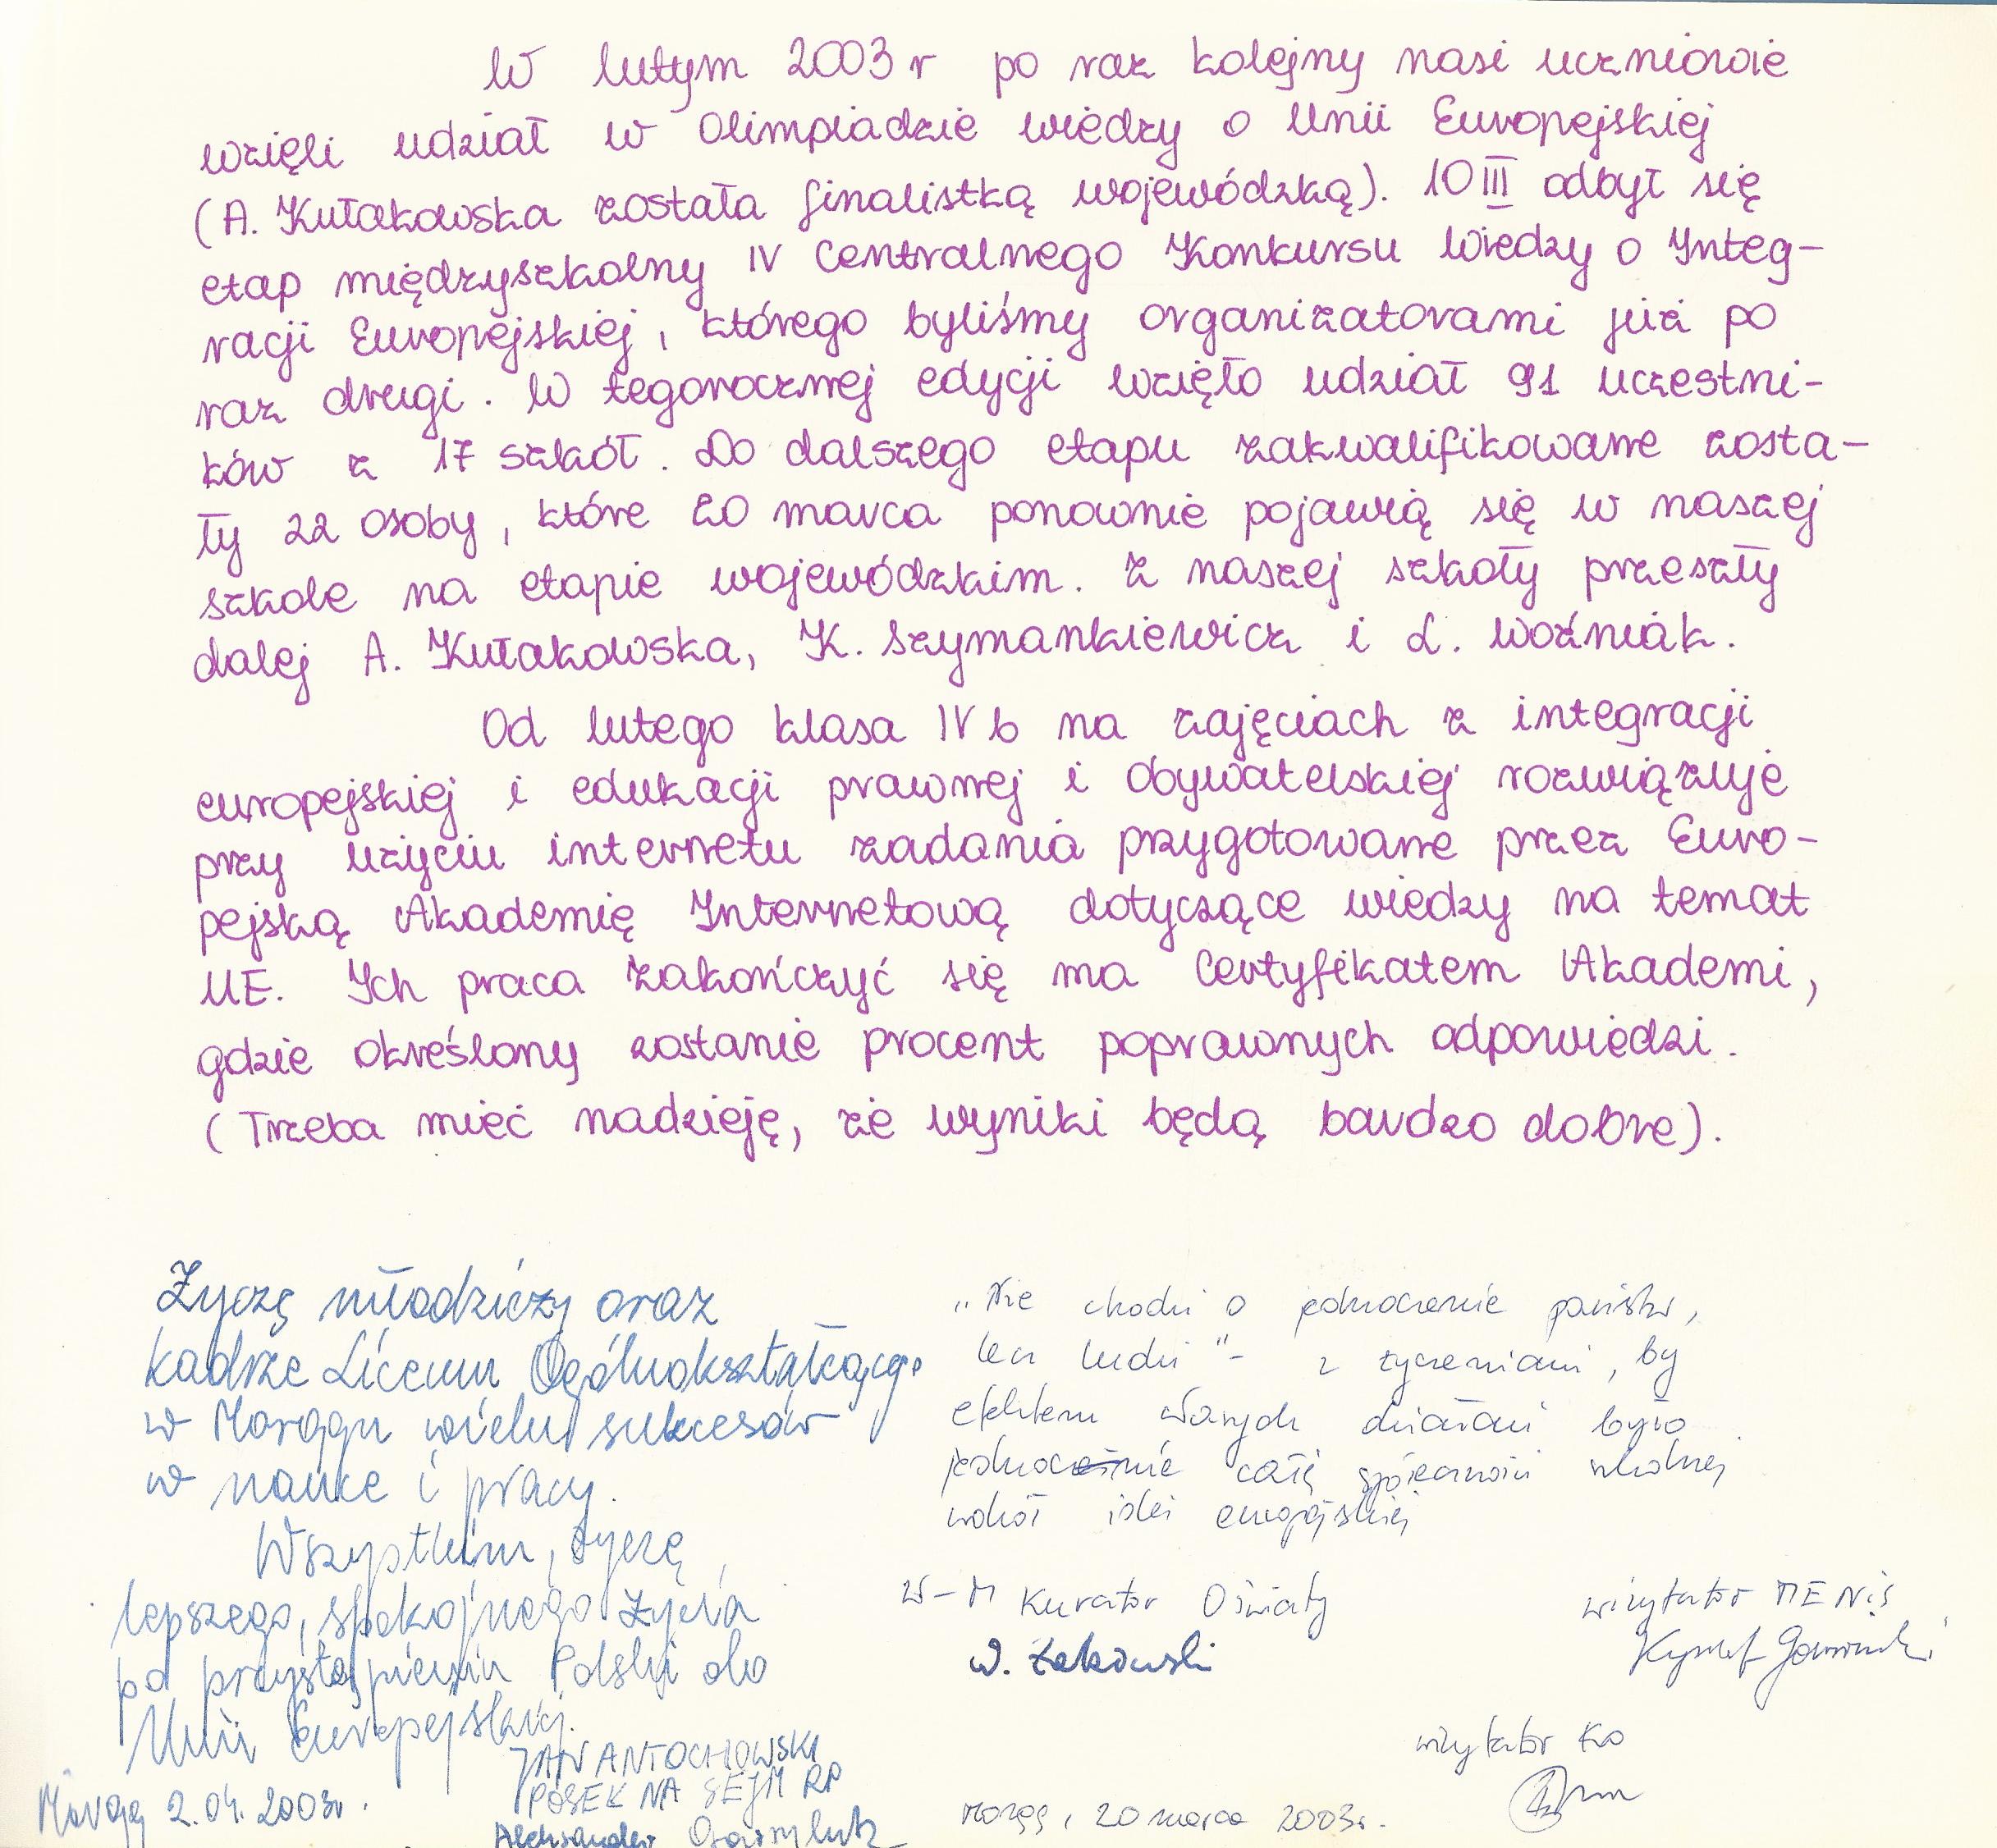 W lutym 2003 r po raz kolejny nasi uczniowie
wzięli udział w Olimpiadzie wiedzy o Unii Europejskiej
(A. Kułakowska została finalistką wojewódzką). 10 III odbył się
etap międzyszkolny IV Centralnego Konkursu Wiedzy o Integ-
racji Europejskiej, którego byliśmy organizatorami już po
raz drugi. W tegorocznej edycji wzięło udział 91 uczestni-
ków z 17 szkół. Do dalszego etapu zakwalifikowane zosta-
ły 22 osoby, które 20 marca ponownie pojawią się w naszej
szkole na etapie wojewódzkim. Z naszej szkoły przeszły
dalej A. Kułakowska, K. Szymankiewicz i L. Woźniak.
Od lutego klasa IV b na zajęciach z integracji
europejskiej i edukacji prawnej i obywatelskiej rozwiązuje
przy użyciu internetu zadania przygotowane przez Euro-
pejską Akademię Internetową dotyczące wiedzy na temat
UE. Ich praca zakończyć się ma Certyfikatem Akademi,
gdzie określony zostanie procent poprawnych odpowiedzi.
(Trzeba mieć nadzieję, że wyniki będą bardzo dobre).
Życzę młodzieży oraz
kadrze Liceum Ogólnokształcącego
w Morągu wielu sukcesów
w nauce i pracy.
Wszystkim, życzę
lepszego, spokojnego życia
po przystąpieniu Polski do
Unii Europejskiej.
JAN ANTOCHOWSKI
POSEŁ NA SEJM RP
Morąg 2.04.2003r.
Aleksander
„Nie chodzi o jednoczenie państw,
lecz ludzi" - z życzeniami, by
efektem Waszych działań było
jednoczenie całej społeczności szkolnej
wokół idei europejskiej
W-M Kurator Oświaty
wizytator MENiS
wizytator KO
Morąg, 20 marca 2003r.